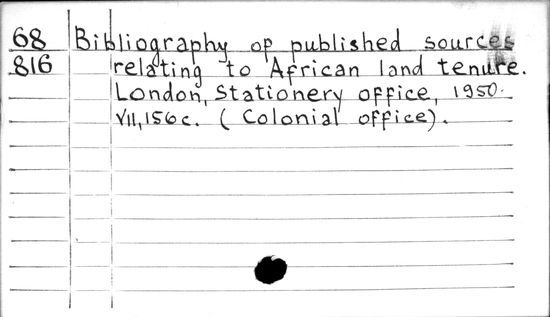 68 Bibliography of published sources
816 relating to African land tenure.
London, Stationery office, 1950.
VII, 156 c. (Colonial office).